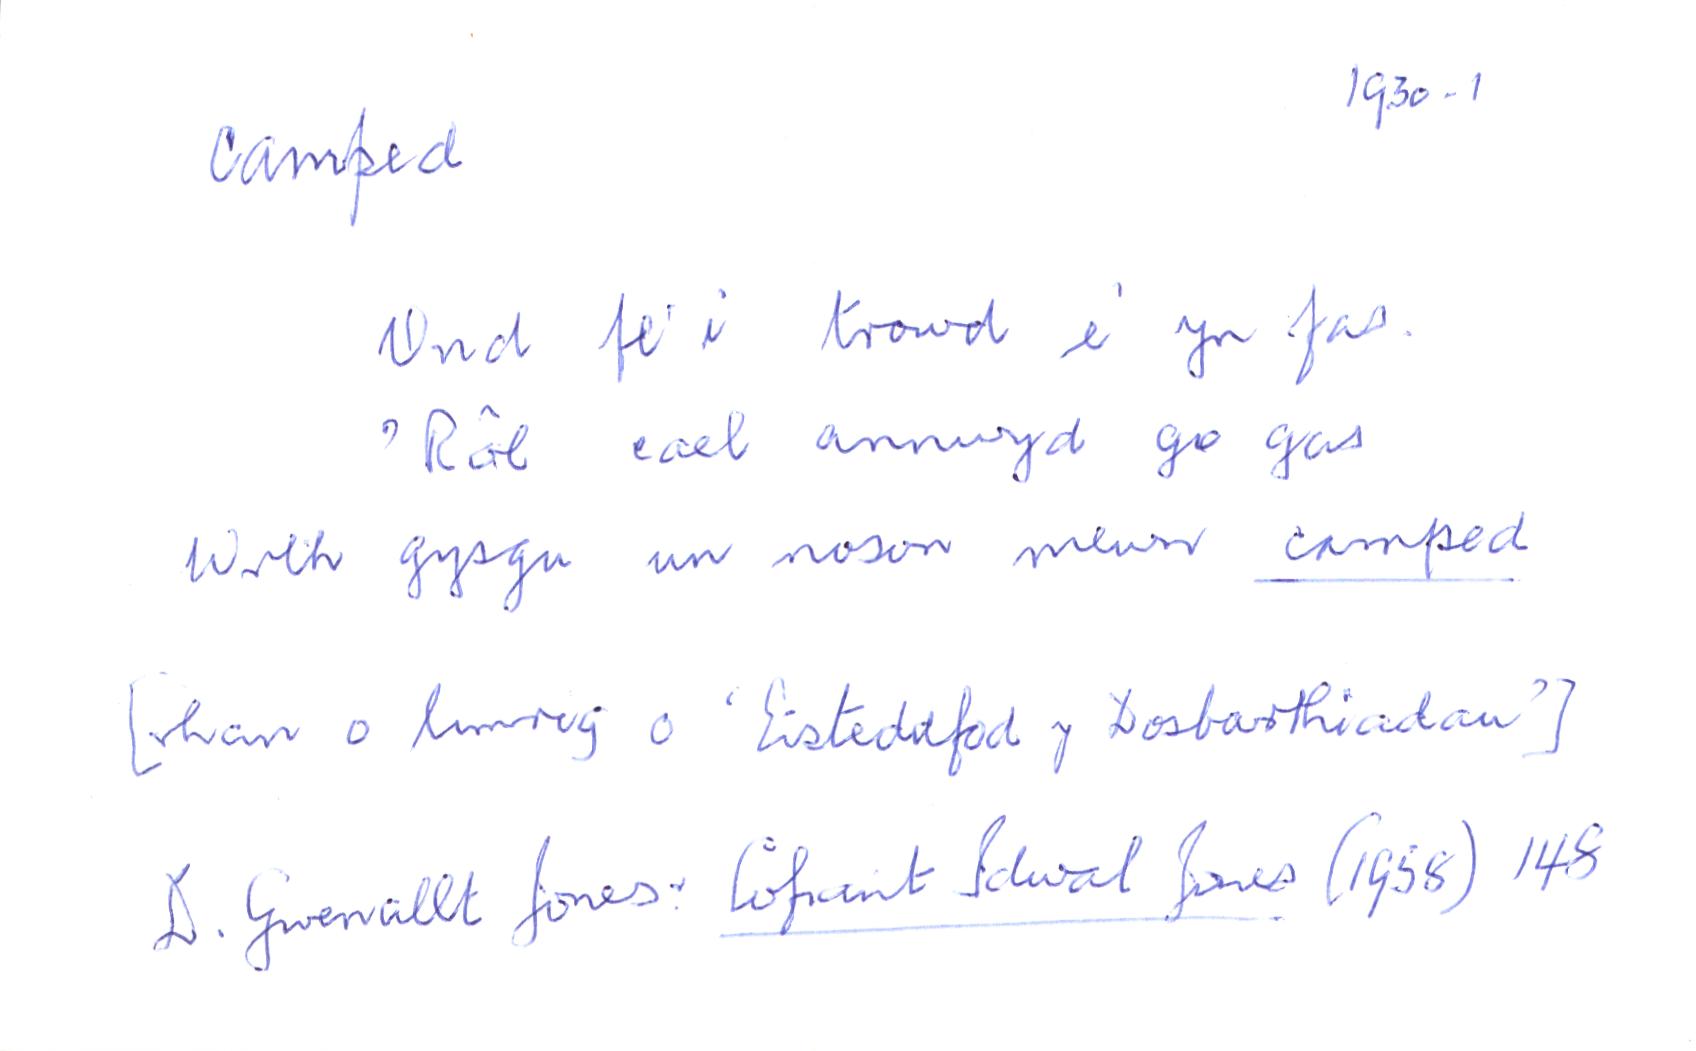 1930-1
camped
Ond fe'i trowd e' yn fas.
'Rôl cael annwyd go gas
Wrth gysgu un noson mewn camped
[rhan o limrig o 'Eisteddfod y Dosbarthiadau']
D. Gwenallt Jones: Cofiant Idwal Jones (1958) 148